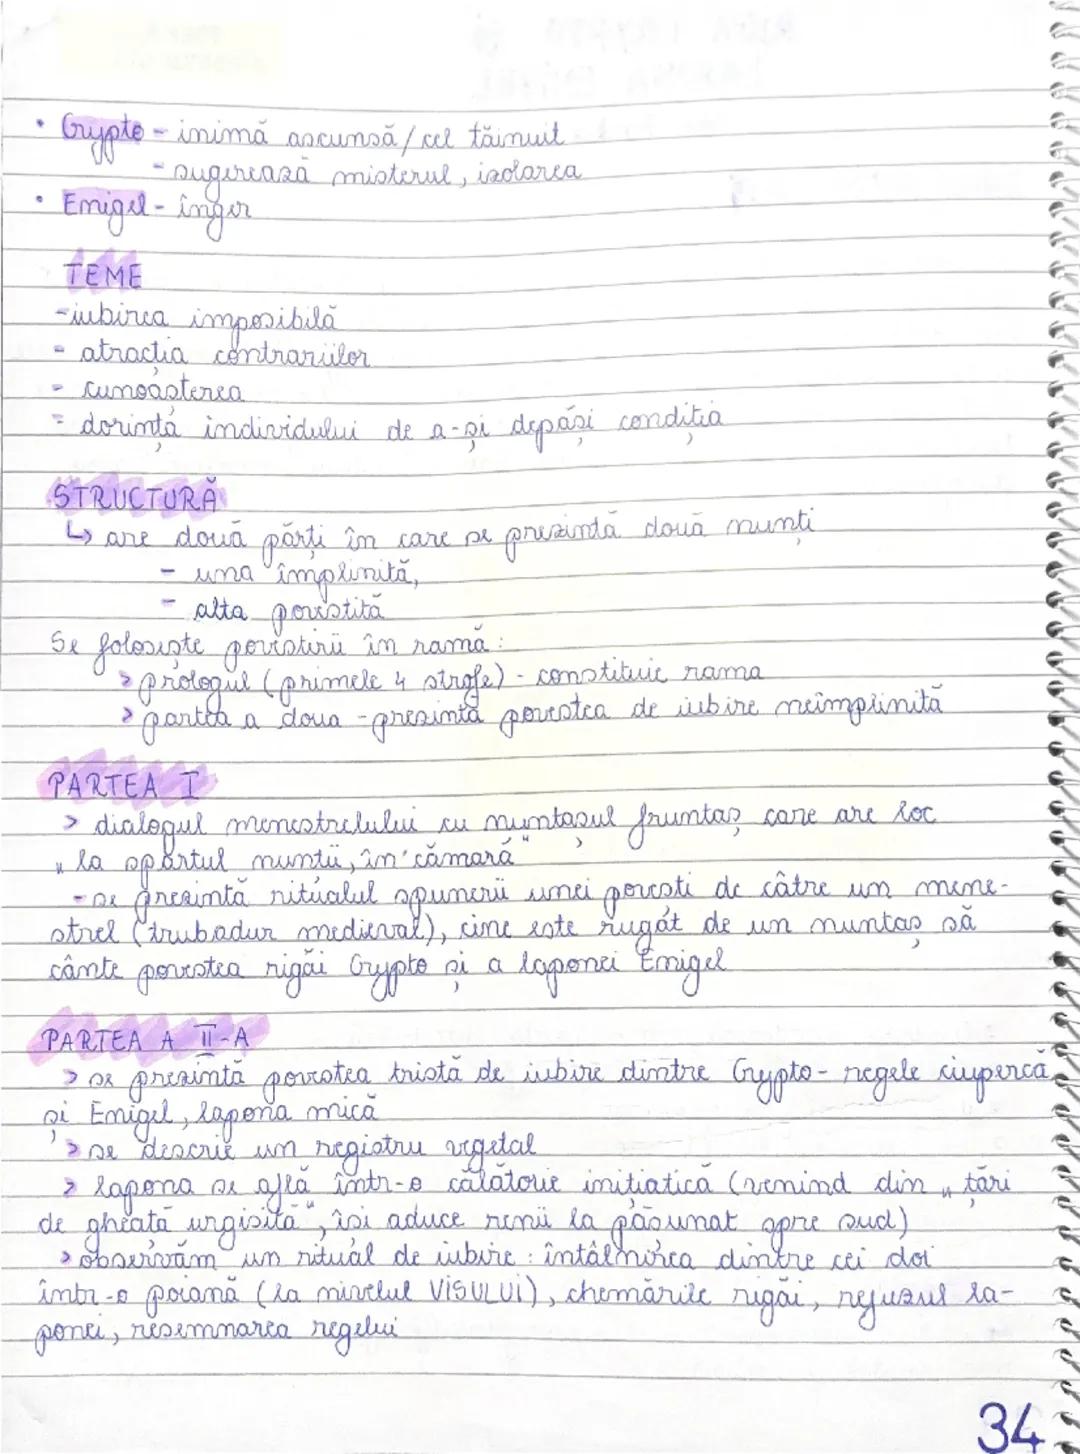 • Crypto - inimă ascunsă/cel tăinuit
- sugerează misterul, izolarea
• Enigel - înger
TEME
- iubirea imposibilă
- atracția contrariilor
- cunoașterea
- dorința individului de a-și depăși condiția
STRUCTURĂ
↳ are două părți în care se prezintă două nunți
- una împlinită,
- alta povestită
Se folosește povestirii în ramă:
> prologul (primele 4 strofe) - constituie rama
> partea a doua - prezintă povestea de iubire neîmplinită
PARTEA I
> dialogul menestrelului cu nuntașul fruntaș, care are loc
„la spartul nunții, în cămară"
- se prezintă ritualul spunerii unei povești de către un mene-
strel (trubadur medieval), cine este rugat de un nuntaș să
cânte povestea rigăi Crypto și a laponei Enigel
PARTEA A II-A
> se prezintă povestea tristă de iubire dintre Crypto - regele ciupercă,
și Enigel, lapona mică
> se descrie un registru vegetal
> lapona se află într-o călătorie inițiatică (venind din „țări
de gheață urgisită", își aduce renii la pășunat spre sud)
> observăm un ritual de iubire: întâlnirea dintre cei doi
într-o poiană (la nivelul VISULUI), chemările rigăi, refuzul la-
ponei, resemnarea regelui
34